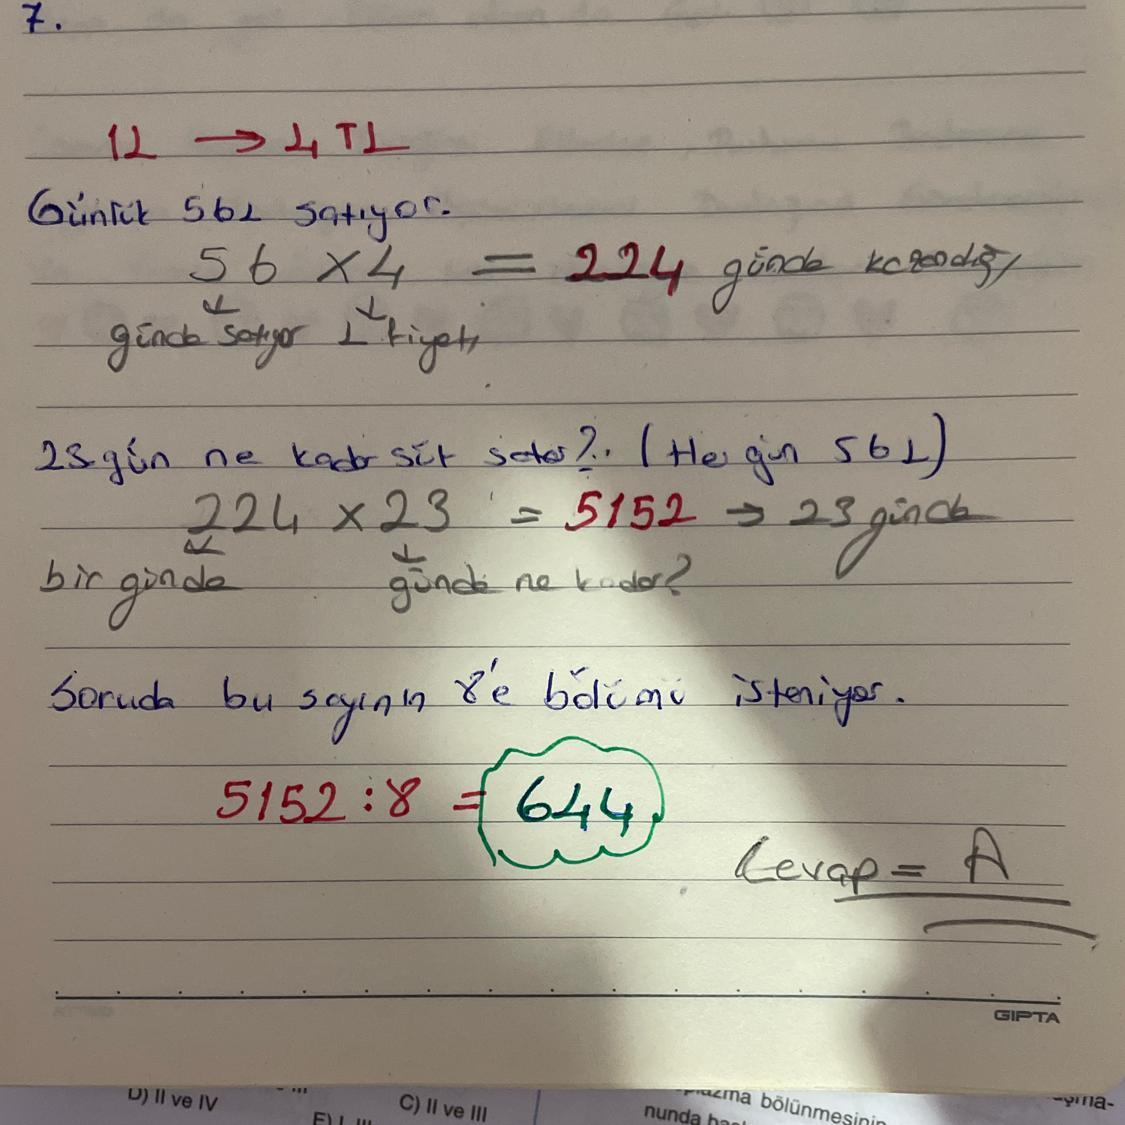 7.
1L → 4 TL
Günlük 56L satıyor.
56 x 4 = 224 günde kazandığı
günde satıyor L fiyatı
23 gün ne kadar süt satar? (Her gün 56L)
224 x 23 = 5152 → 23 günde
bir günde günde ne kadar?
Soruda bu sayının 8'e bölümü isteniyor.
5152 : 8 = 644
Cevap = A
GIPTA
D) II ve IV
C) II ve III
bölünmesinin
nunda